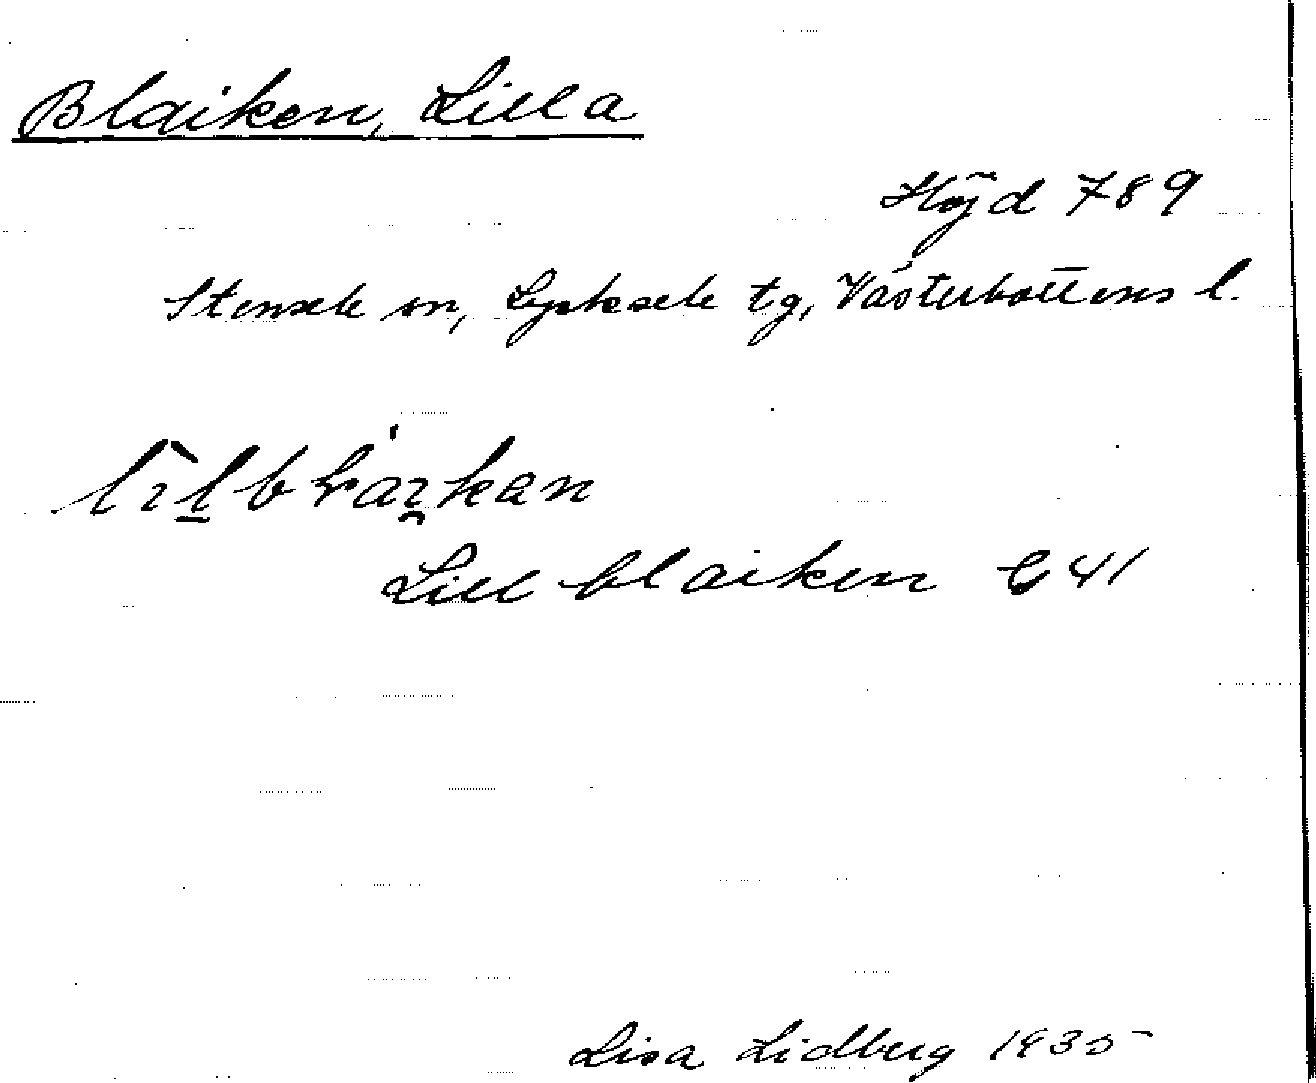 Blaiken, Lilla
Höjd 789
Stensele sn, Lycksele tg, Västerbottens l.
Lill blaiken G 41
Lisa Lidberg 1935